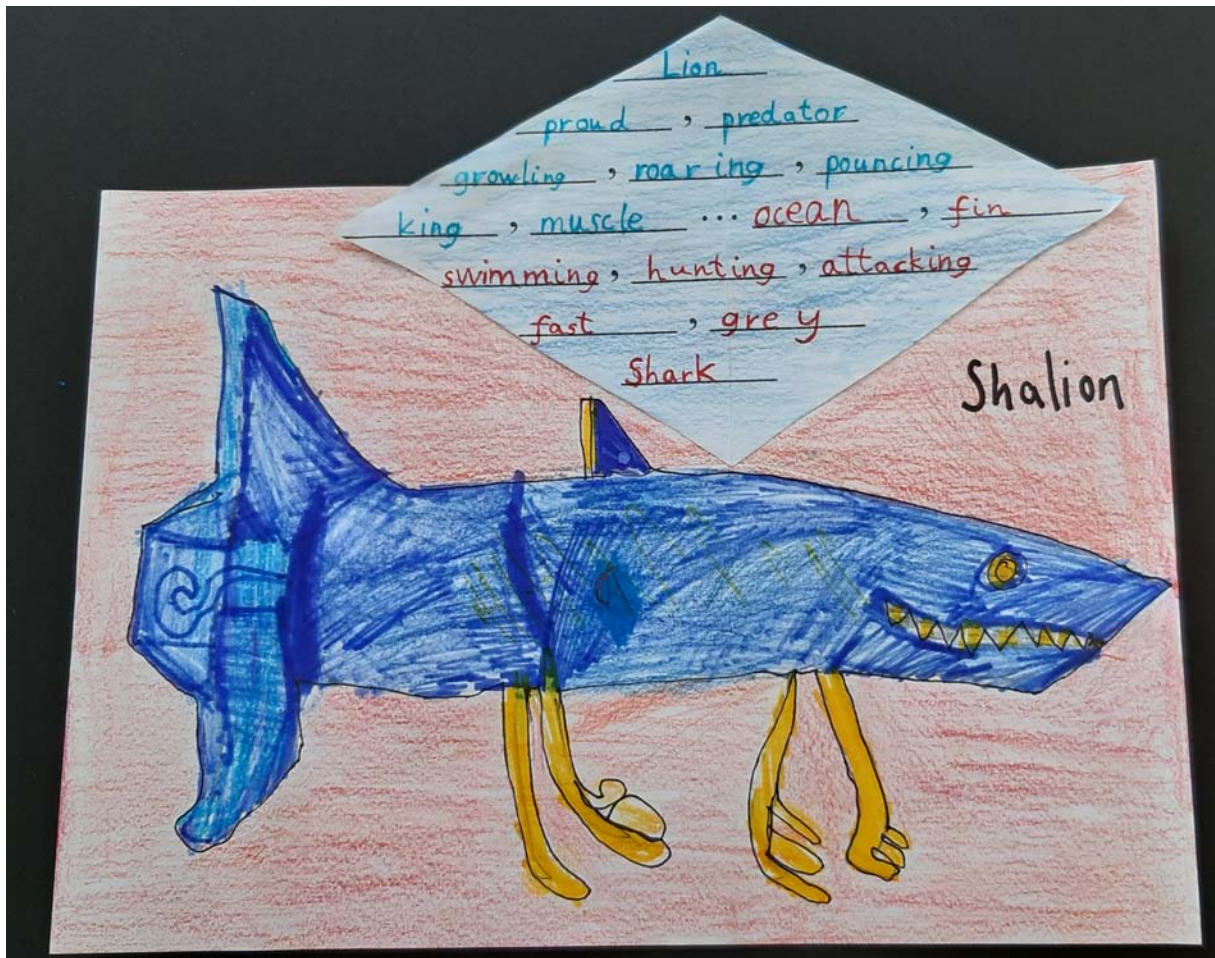 Lion
proud, predator
growling, roaring, pouncing
king, muscle ... ocean, fin
swimming, hunting, attacking
fast, grey
Shark
Shalion